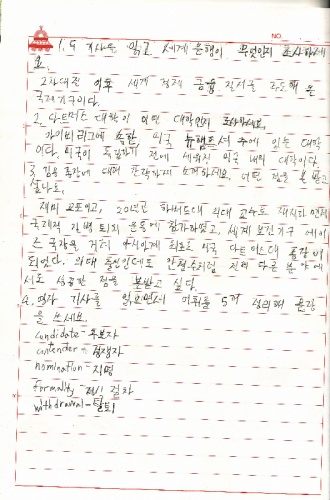 NO.
1. 9 기사를 읽고 세계은행이 무엇인지 조사하세
요.
2차대전 이후 세계 경제 금융 질서를 주도해 온
국제기구이다.
2. 다트머스 대학이 어떤 대학인지 조사하세요.
아이비리그에 속한 미국 뉴햄프셔 주에 있는 대학
이다. 미국이 독립하기 전에 세워진 미국 내의 대학이다.
3. 김용 총장에 대해 간략하게 소개하세요. 어떤 점을 본받고
싶나요.
재미 교포이고, 20년간 하버드대 의대 교수로 재직하면서
국제적 질병 퇴치 운동에 참가하였고, 세계 보건기구 에이
즈 국장을 거쳐 아시아계 최초로 미국 다트머스대 총장이
되었다. 의대 출신인데도 안철수처럼 전혀 다른 분야에
서도 성공한 점을 본받고 싶다.
4. 영자 기사를 읽으면서 어휘를 5개 정리해 문장
을 쓰세요.
candidate - 후보자
contender - 경쟁자
nomination - 지명
formality - 절차
withdrawal - 탈퇴